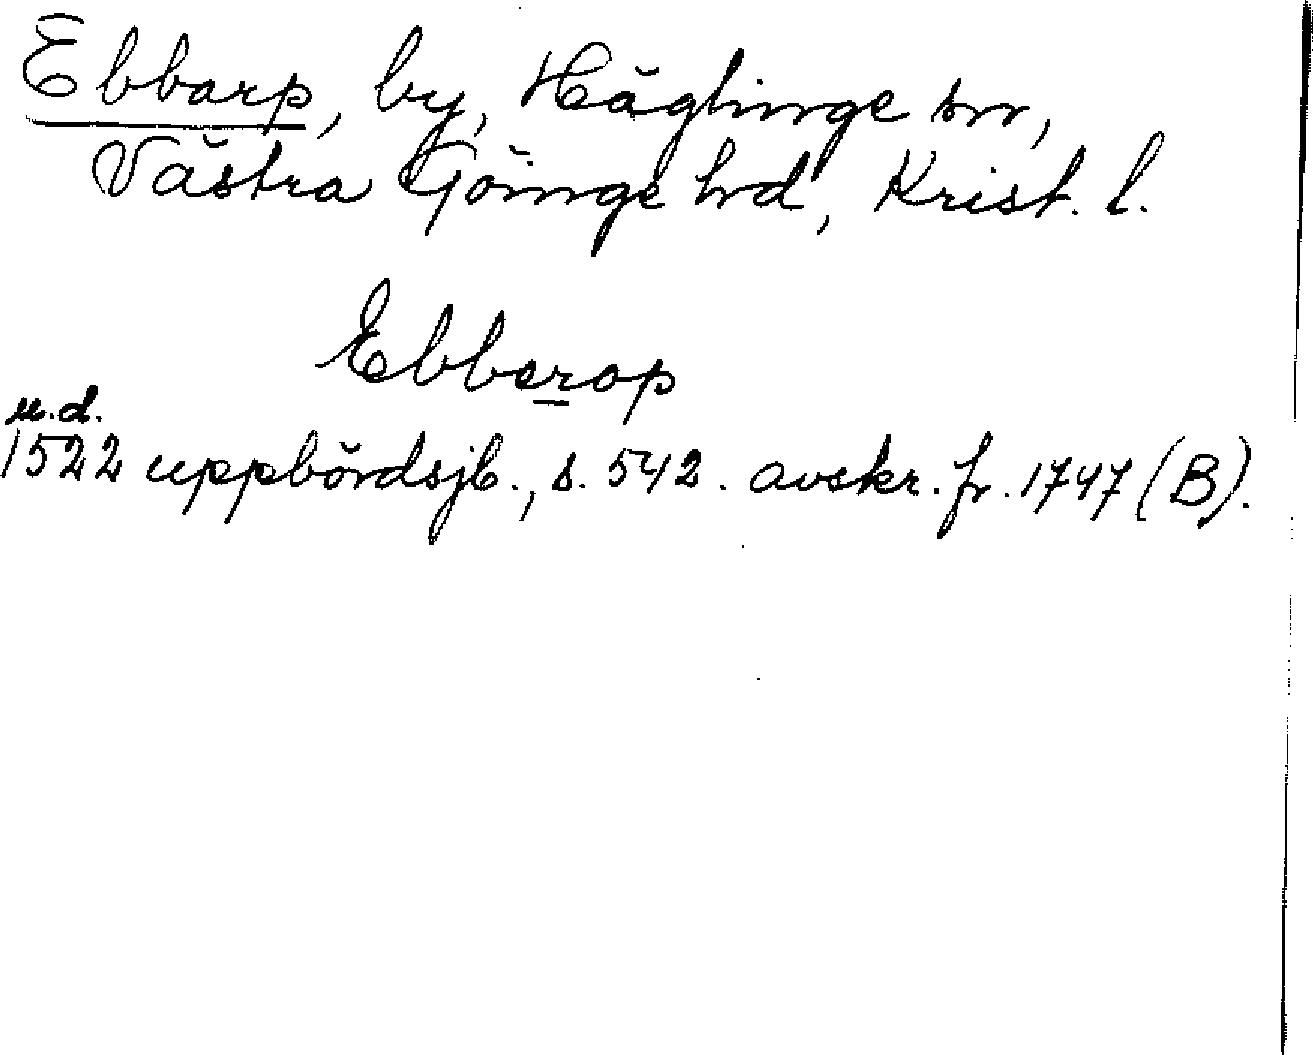 Ebbarp, by, Häglinge sn,
Västra Göinge hd, Krist. l.
Ebberop
u.d.
1522 uppbördsjb., s. 542. avskr. fr. 1747 (B).